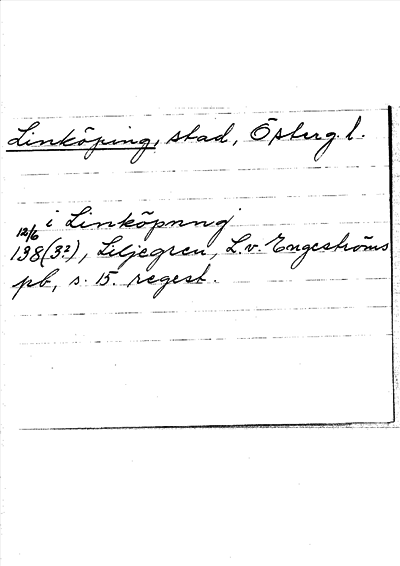 Linköping, stad, Österg. l.
i Linköpnng
12/6
138(3?), Liljegren, L. v. Engeströms
pb, s. 15. regest.